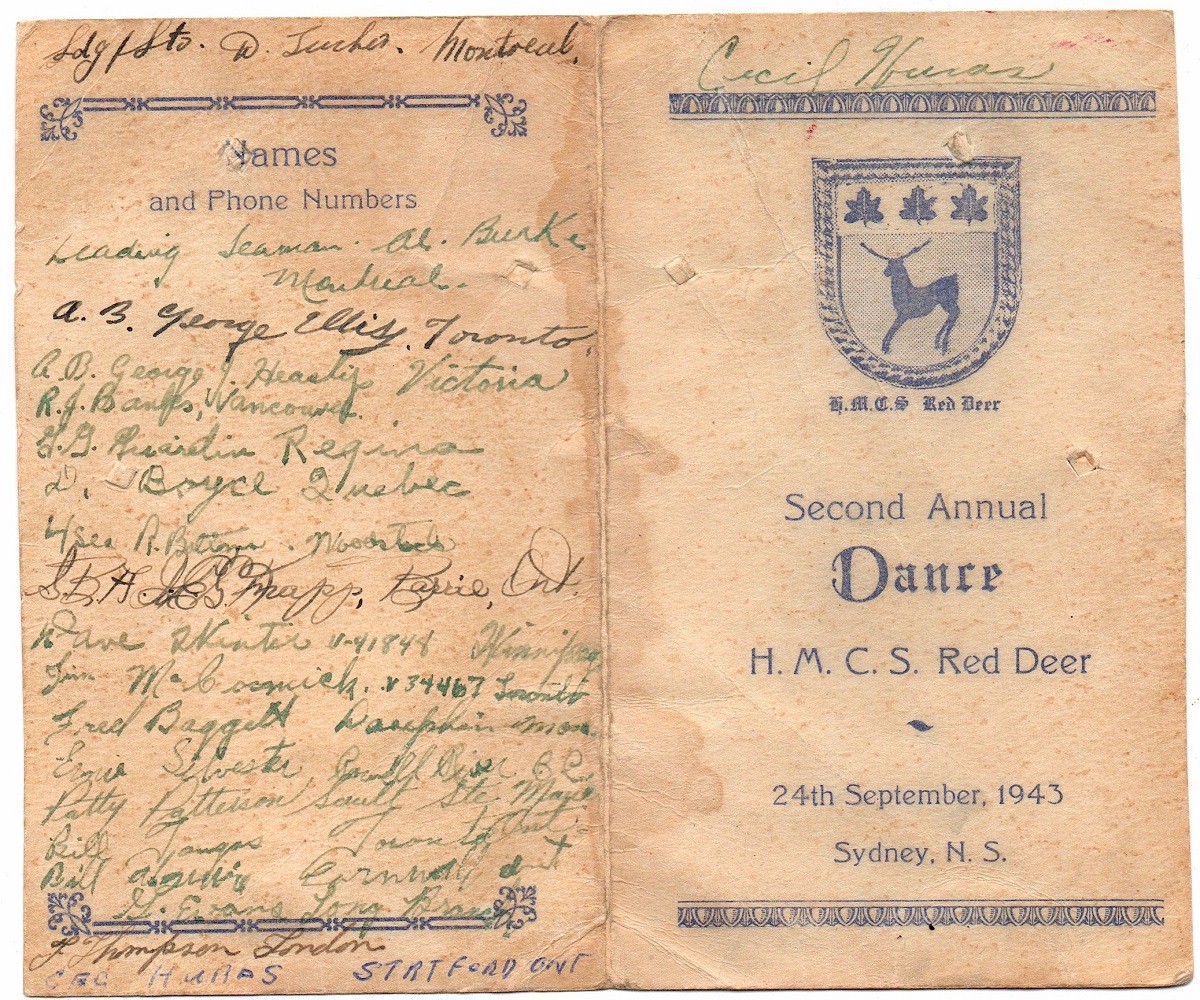 Ldg/Sto. D. Tucker. Montreal.
Names
and Phone Numbers
Leading Seaman. Al. Burke
Montreal.
A. B. George Ellis, Toronto.
A.B. George J. Heaslip Victoria
R.J. Banks, Vancouver.
Regina
D. Boyce Quebec
R.
S.B.A. Barrie, Ont.
Dave Skinter V-41848 Winnipeg
Jim McCormick. V34467 Toronto
Fred Baggett Dauphin Man.
Ernie Silvester Powell River B.C.
Patty Patterson Sault Ste Marie
Bill Toronto Ont
Bill Cornwall Ont
G. Evans Long Branch
F Thompson London
CEC HURAS STRTFORD ONT
Cecil Huras
H.M.C.S Red Deer
Second Annual
Dance
H. M. C. S. Red Deer
24th September, 1943
Sydney, N. S.